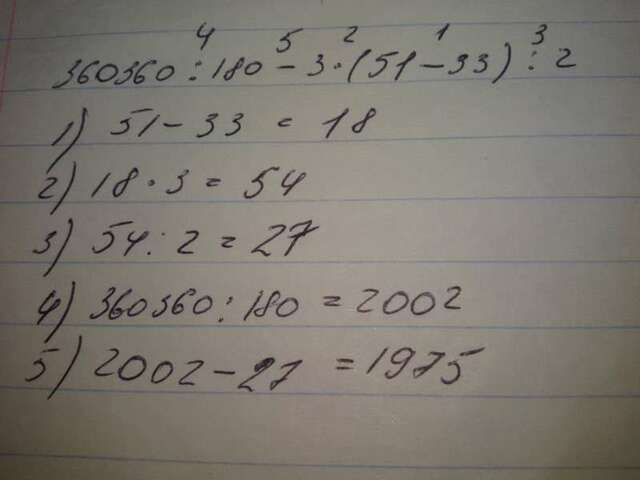 4 5 2 1 3
360360 : 180 - 3 · (51 - 33) : 2
1) 51 - 33 = 18
2) 18 · 3 = 54
3) 54 : 2 = 27
4) 360360 : 180 = 2002
5) 2002 - 27 = 1975